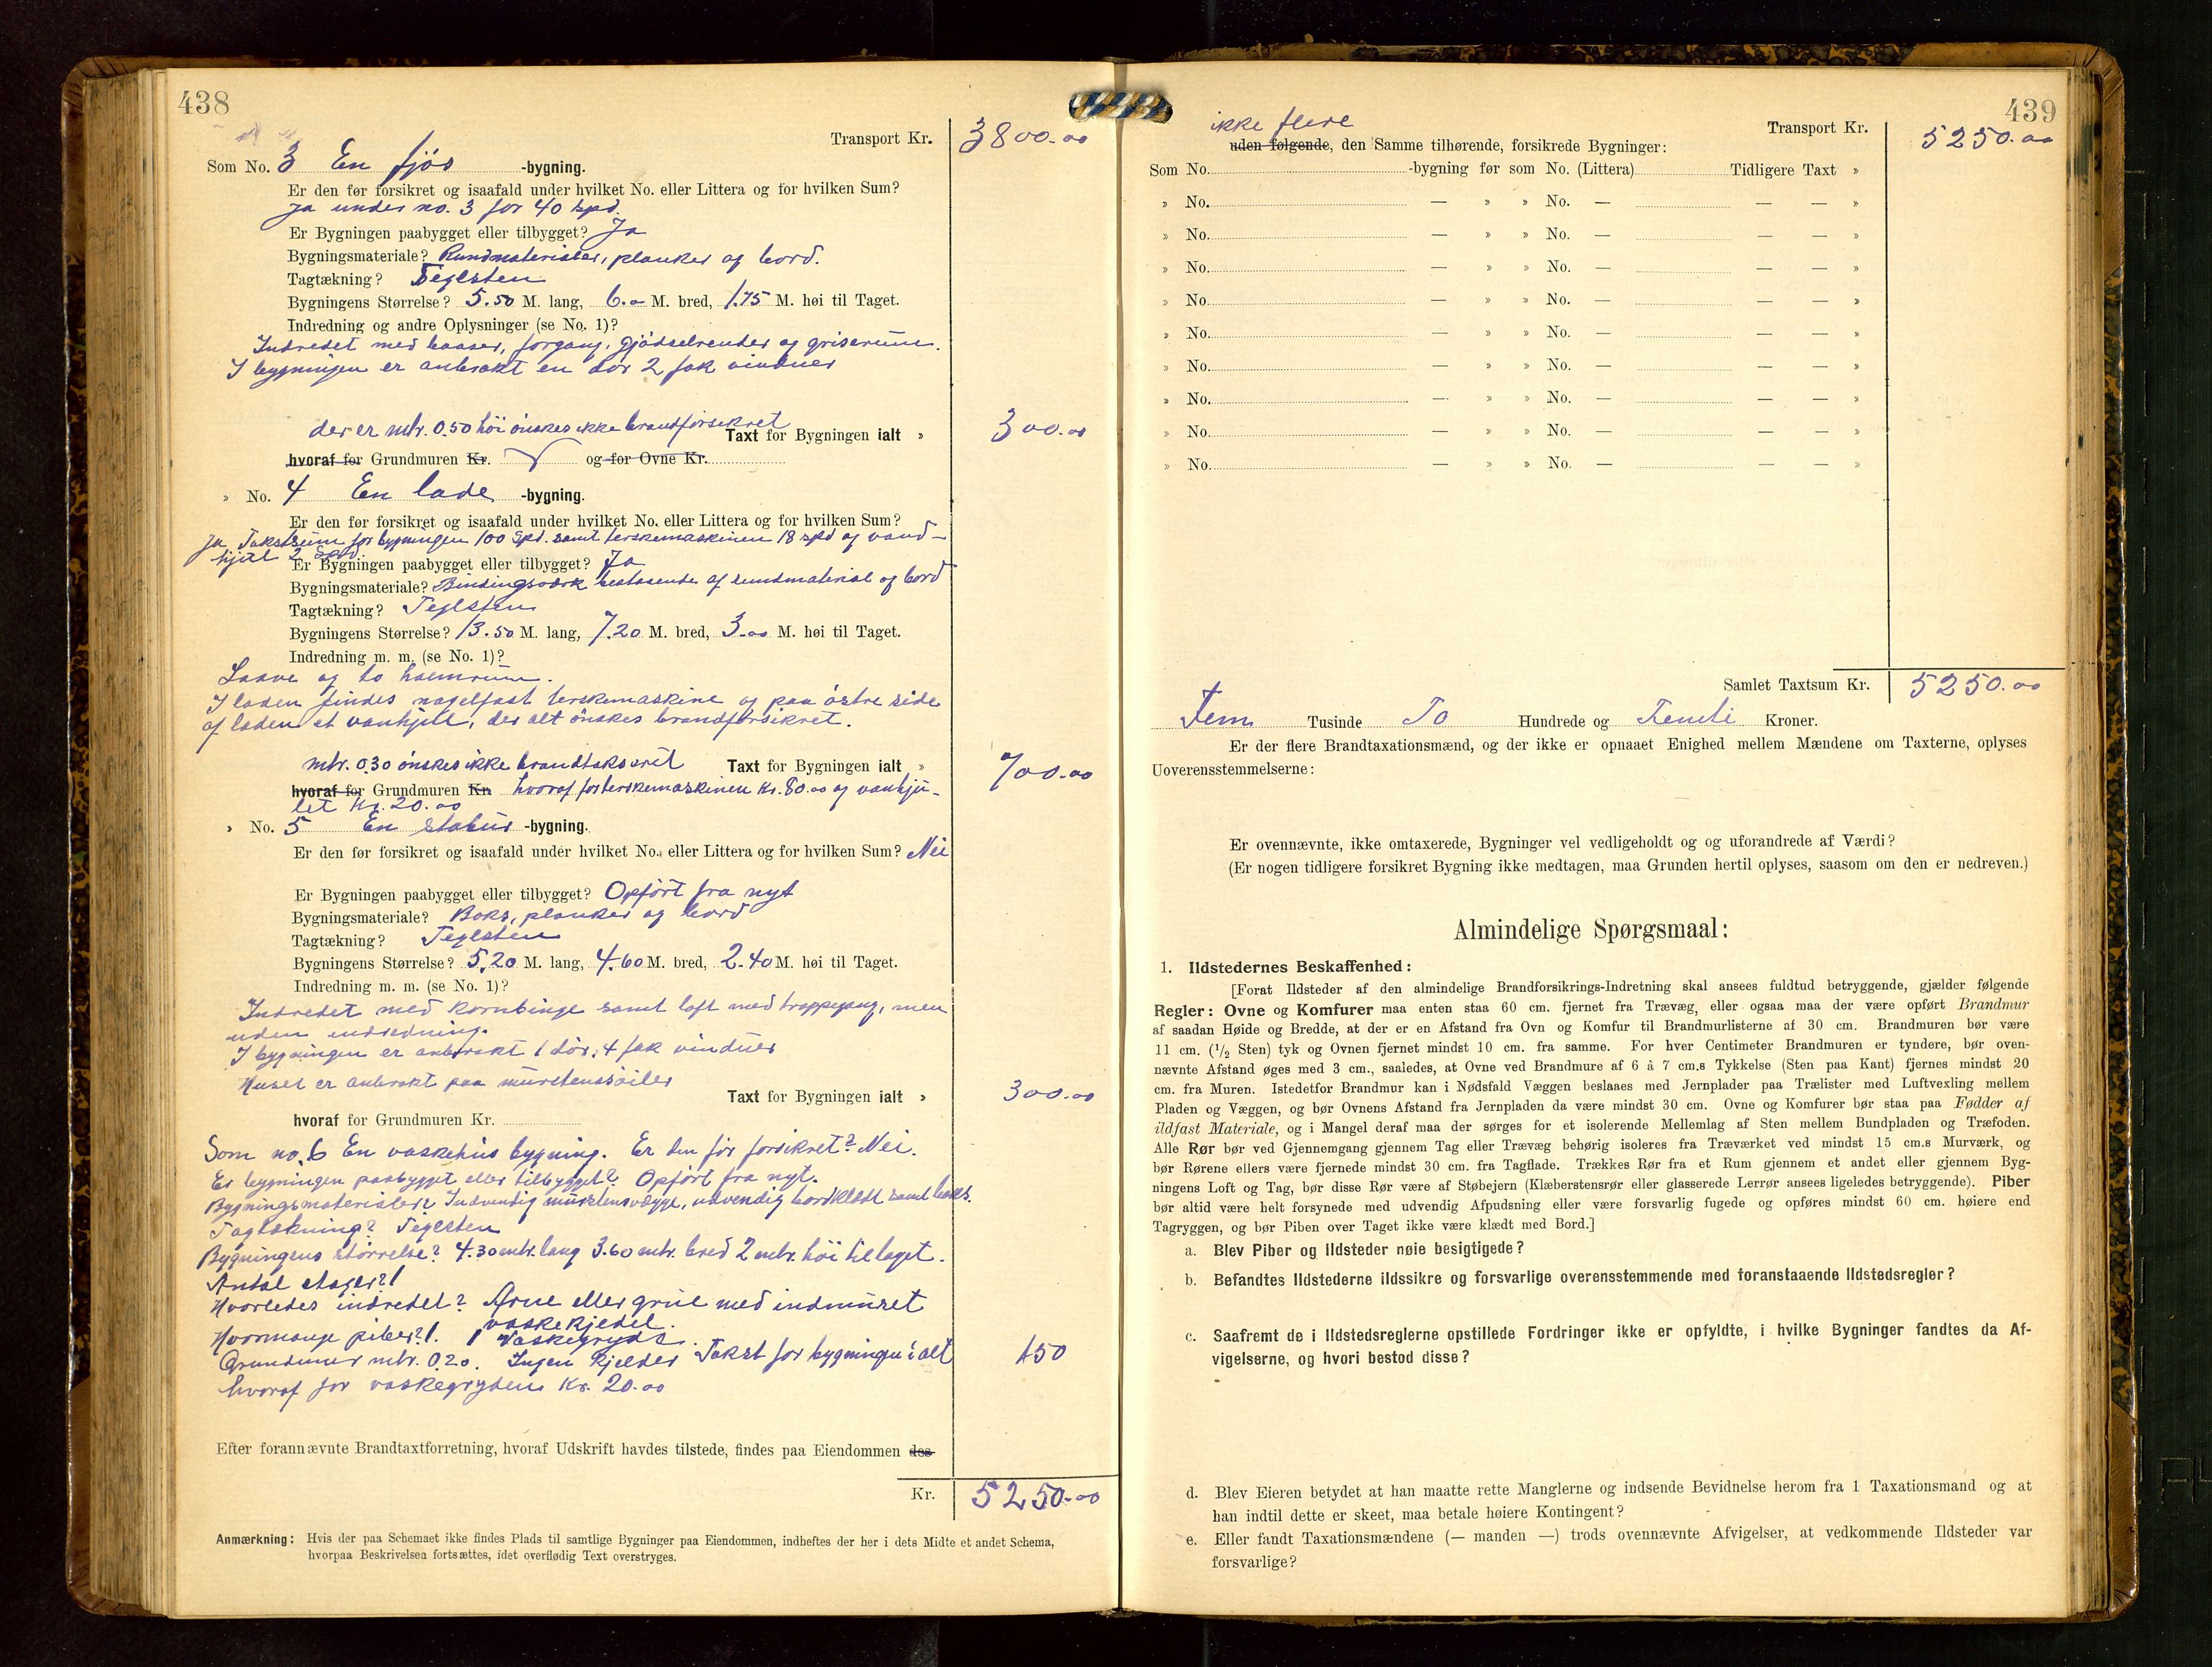 438
Transport Kr. 3800.00
Som No. 3 En fjøs -bygning.
Er den før forsikret og isaafald under hvilket No. eller Littera og for hvilken Sum?
Ja under no. 3 for 40 Spd.
Er Bygningen paabygget eller tilbygget? Ja
Bygningsmateriale? Rundmaterialer, planker og bord.
Tagtækning? Teglsten
Bygningens Størrelse? 5.50 M. lang, 6.00 M. bred, 1.75 M. høi til Taget.
Indredning og andre Oplysninger (se No. 1)?
Indredet med baaser, forgang, gjødselrender og griserum.
I bygningen er anbrakt en dør 2 fak vinduer
der er mtr. 0.50 høi ønskes ikke brandforsikret
Taxt for Bygningen ialt » 300.00
hvoraf for Grundmuren Kr. og for Ovne Kr.
» No. 4 En lade -bygning.
Er den før forsikret og isaafald under hvilket No. eller Littera og for hvilken Sum?
Ja Takstsum for bygningen 100 Spd. samt terskemaskinen 18 spd og vand-
hjul 2 Spd.
Er Bygningen paabygget eller tilbygget? Ja
Bygningsmateriale? Bindingsværk bestaaende af rundmaterial og bord
Tagtækning? Teglsten
Bygningens Størrelse? 13.50 M. lang, 7.20 M. bred, 3.00 M. høi til Taget.
Indredning m. m. (se No. 1)?
Laave og to halmrum.
I laden findes nagelfast terskemaskine og paa østre side
af laden et vanhjul, der alt ønskes brandforsikret.
mtr. 0.30 ønskes ikke brandtakseret Taxt for Bygningen ialt » 700.00
hvoraf for Grundmuren Kr. hvoraf for terskemaskinen Kr. 80.00 og vanhju-
let Kr. 20.00
» No. 5 En stabur -bygning.
Er den før forsikret og isaafald under hvilket No. eller Littera og for hvilken Sum? Nei
Er Bygningen paabygget eller tilbygget? Opført fra nyt
Bygningsmateriale? Boks, planker og bord
Tagtækning? Teglsten
Bygningens Størrelse? 5.20 M. lang, 4.60 M. bred, 2.40 M. høi til Taget.
Indredning m. m. (se No. 1)?
Indredet med kornbinge samt loft med trappegang, men
uden indredning.
I bygningen er anbrakt 1 dør, 4 fak vinduer
Huset er anbrakt paa murstenssøiler
Taxt for Bygningen ialt » 300.00
hvoraf for Grundmuren Kr.
Som no. 6 En vaskehus bygning. Er den før forsikret? Nei.
Er bygningen paabygget eller tilbygget? Opført fra nyt.
Bygningsmaterialer? Indvendig murstensvægge, udvendig bordklædt samt boks.
Tagtækning? Teglsten
Bygningens størrelse? 4.30 mtr. lang 3.60 mtr. bred 2 mtr. høi til taget.
Antal etager? 1
Hvorledes indredet? Arne eller grue med indmuret
vaskekjedel.
Hvormange piber? 1. 1 Vaskegryde.
Grundmur mtr. 0.20. Ingen kjelder Takst for bygningen i alt 150
hvoraf for vaskegryden Kr. 20.00
Efter forannævnte Brandtaxtforretning, hvoraf Udskrift havdes tilstede, findes paa Eiendommen des-
Kr. 5250.00
Anmærkning: Hvis der paa Schemaet ikke findes Plads til samtlige Bygninger paa Eiendommen, indheftes der her i dets Midte et andet Schema,
hvorpaa Beskrivelsen fortsættes, idet overflødig Text overstryges.
439
ikke flere
Transport Kr. 5250.00
uden følgende, den Samme tilhørende, forsikrede Bygninger:
Som No. -bygning før som No. (Littera) Tidligere Taxt »
» No. — » » No. — — — »
» No. — » » No. — — — »
» No. — » » No. — — — »
» No. — » » No. — — — »
» No. — » » No. — — — »
» No. — » » No. — — — »
» No. — » » No. — — — »
» No. — » » No. — — — »
» No. — » » No. — — — »
Samlet Taxtsum Kr. 5250.00
Fem Tusinde To Hundrede og Femti Kroner.
Er der flere Brandtaxationsmænd, og der ikke er opnaaet Enighed mellem Mændene om Taxterne, oplyses
Uoverensstemmelserne:
Er ovennævnte, ikke omtaxerede, Bygninger vel vedligeholdt og og uforandrede af Værdi?
(Er nogen tidligere forsikret Bygning ikke medtagen, maa Grunden hertil oplyses, saasom om den er nedreven.)
Almindelige Spørgsmaal:
1. Ildstedernes Beskaffenhed:
[Forat Ildsteder af den almindelige Brandforsikrings-Indretning skal ansees fuldtud betryggende, gjælder følgende
Regler: Ovne og Komfurer maa enten staa 60 cm. fjernet fra Trævæg, eller ogsaa maa der være opført Brandmur
af saadan Høide og Bredde, at der er en Afstand fra Ovn og Komfur til Brandmurlisterne af 30 cm. Brandmuren bør være
11 cm. (1/2 Sten) tyk og Ovnen fjernet mindst 10 cm. fra samme. For hver Centimeter Brandmuren er tyndere, bør oven-
nævnte Afstand øges med 3 cm., saaledes, at Ovne ved Brandmure af 6 à 7 cm.s Tykkelse (Sten paa Kant) fjernes mindst 20
cm. fra Muren. Istedetfor Brandmur kan i Nødsfald Væggen beslaaes med Jernplader paa Trælister med Luftvexling mellem
Pladen og Væggen, og bør Ovnens Afstand fra Jernpladen da være mindst 30 cm. Ovne og Komfurer bør staa paa Fødder af
ildfast Materiale, og i Mangel deraf maa der sørges for et isolerende Mellemlag af Sten mellem Bundpladen og Træfoden.
Alle Rør bør ved Gjennemgang gjennem Tag eller Trævæg behørig isoleres fra Træværket ved mindst 15 cm.s Murværk, og
bør Rørene ellers være fjernede mindst 30 cm. fra Tagflade. Trækkes Rør fra et Rum gjennem et andet eller gjennem Byg-
ningens Loft og Tag, bør disse Rør være af Støbejern (Klæberstensrør eller glasserede Lerrør ansees ligeledes betryggende). Piber
bør altid være helt forsynede med udvendig Afpudsning eller være forsvarlig fugede og opføres mindst 60 cm. høiere end
Tagryggen, og bør Piben over Taget ikke være klædt med Bord.]
a. Blev Piber og Ildsteder nøie besigtigede?
b. Befandtes Ildstederne ildssikre og forsvarlige overensstemmende med foranstaaende Ildstedsregler?
c. Saafremt de i Ildstedsreglerne opstillede Fordringer ikke er opfyldte, i hvilke Bygninger fandtes da Af-
vigelserne, og hvori bestod disse?
d. Blev Eieren betydet at han maatte rette Manglerne og indsende Bevidnelse herom fra 1 Taxationsmand og at
han indtil dette er skeet, maa betale høiere Kontingent?
e. Eller fandt Taxationsmændene (— manden —) trods ovennævnte Afvigelser, at vedkommende Ildsteder var
forsvarlige?